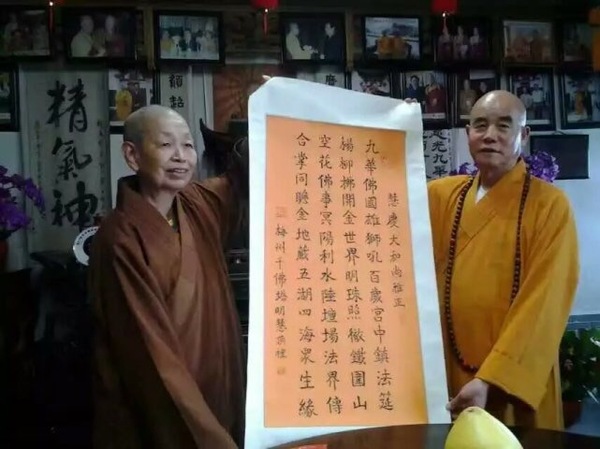 慧慶大和尚雅正
九華佛國雄獅吼百歲宮中鎮法筵
楊柳拂開金世界明珠照徹鐵圍山
空花佛事冥陽利水陸壇場法界傳
合掌同聽金地藏五湖四海眾生緣
梅州千佛塔明慧頂禮
精氣神
光九華